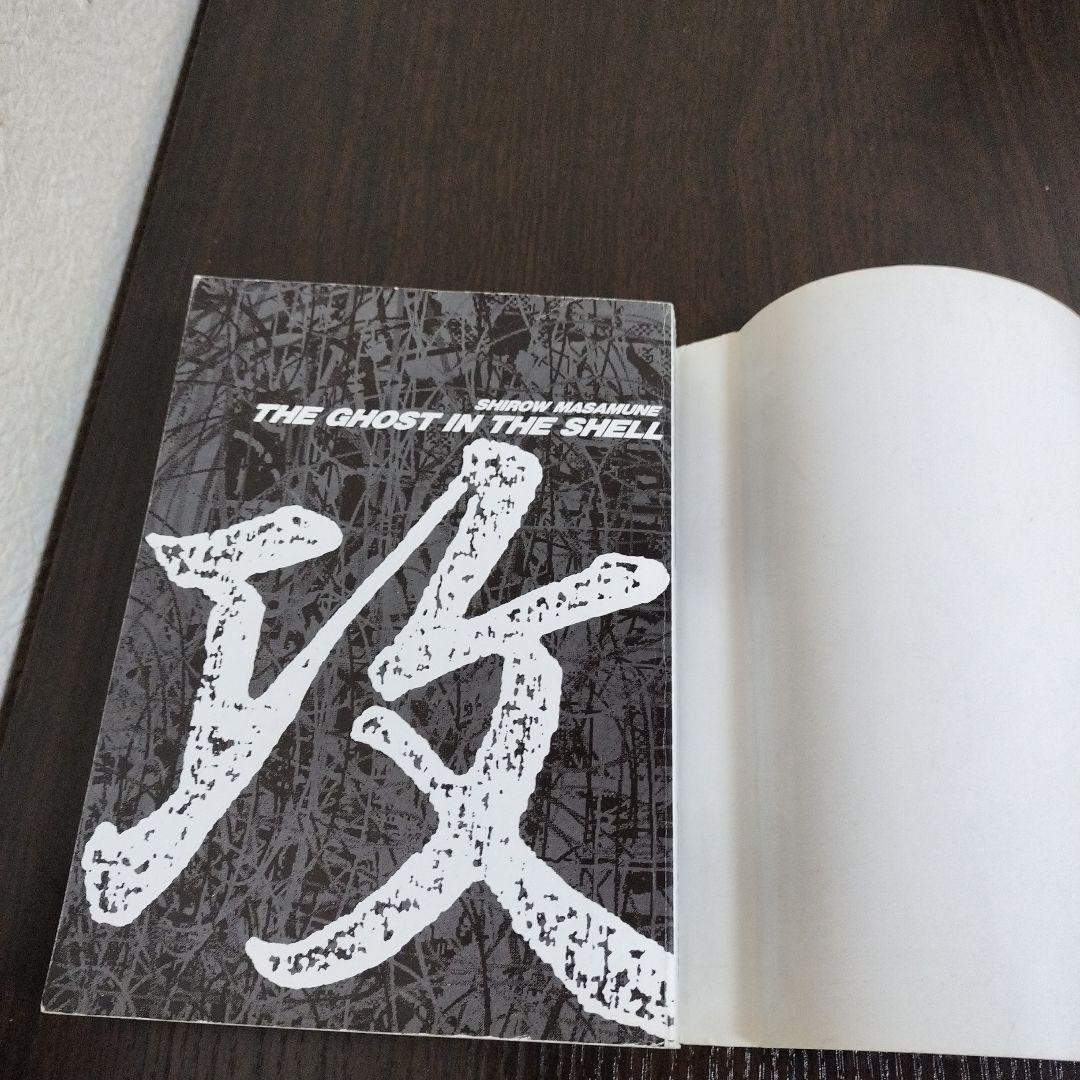 SHIROW MASAMUNE
THE GHOST IN THE SHELL
攻